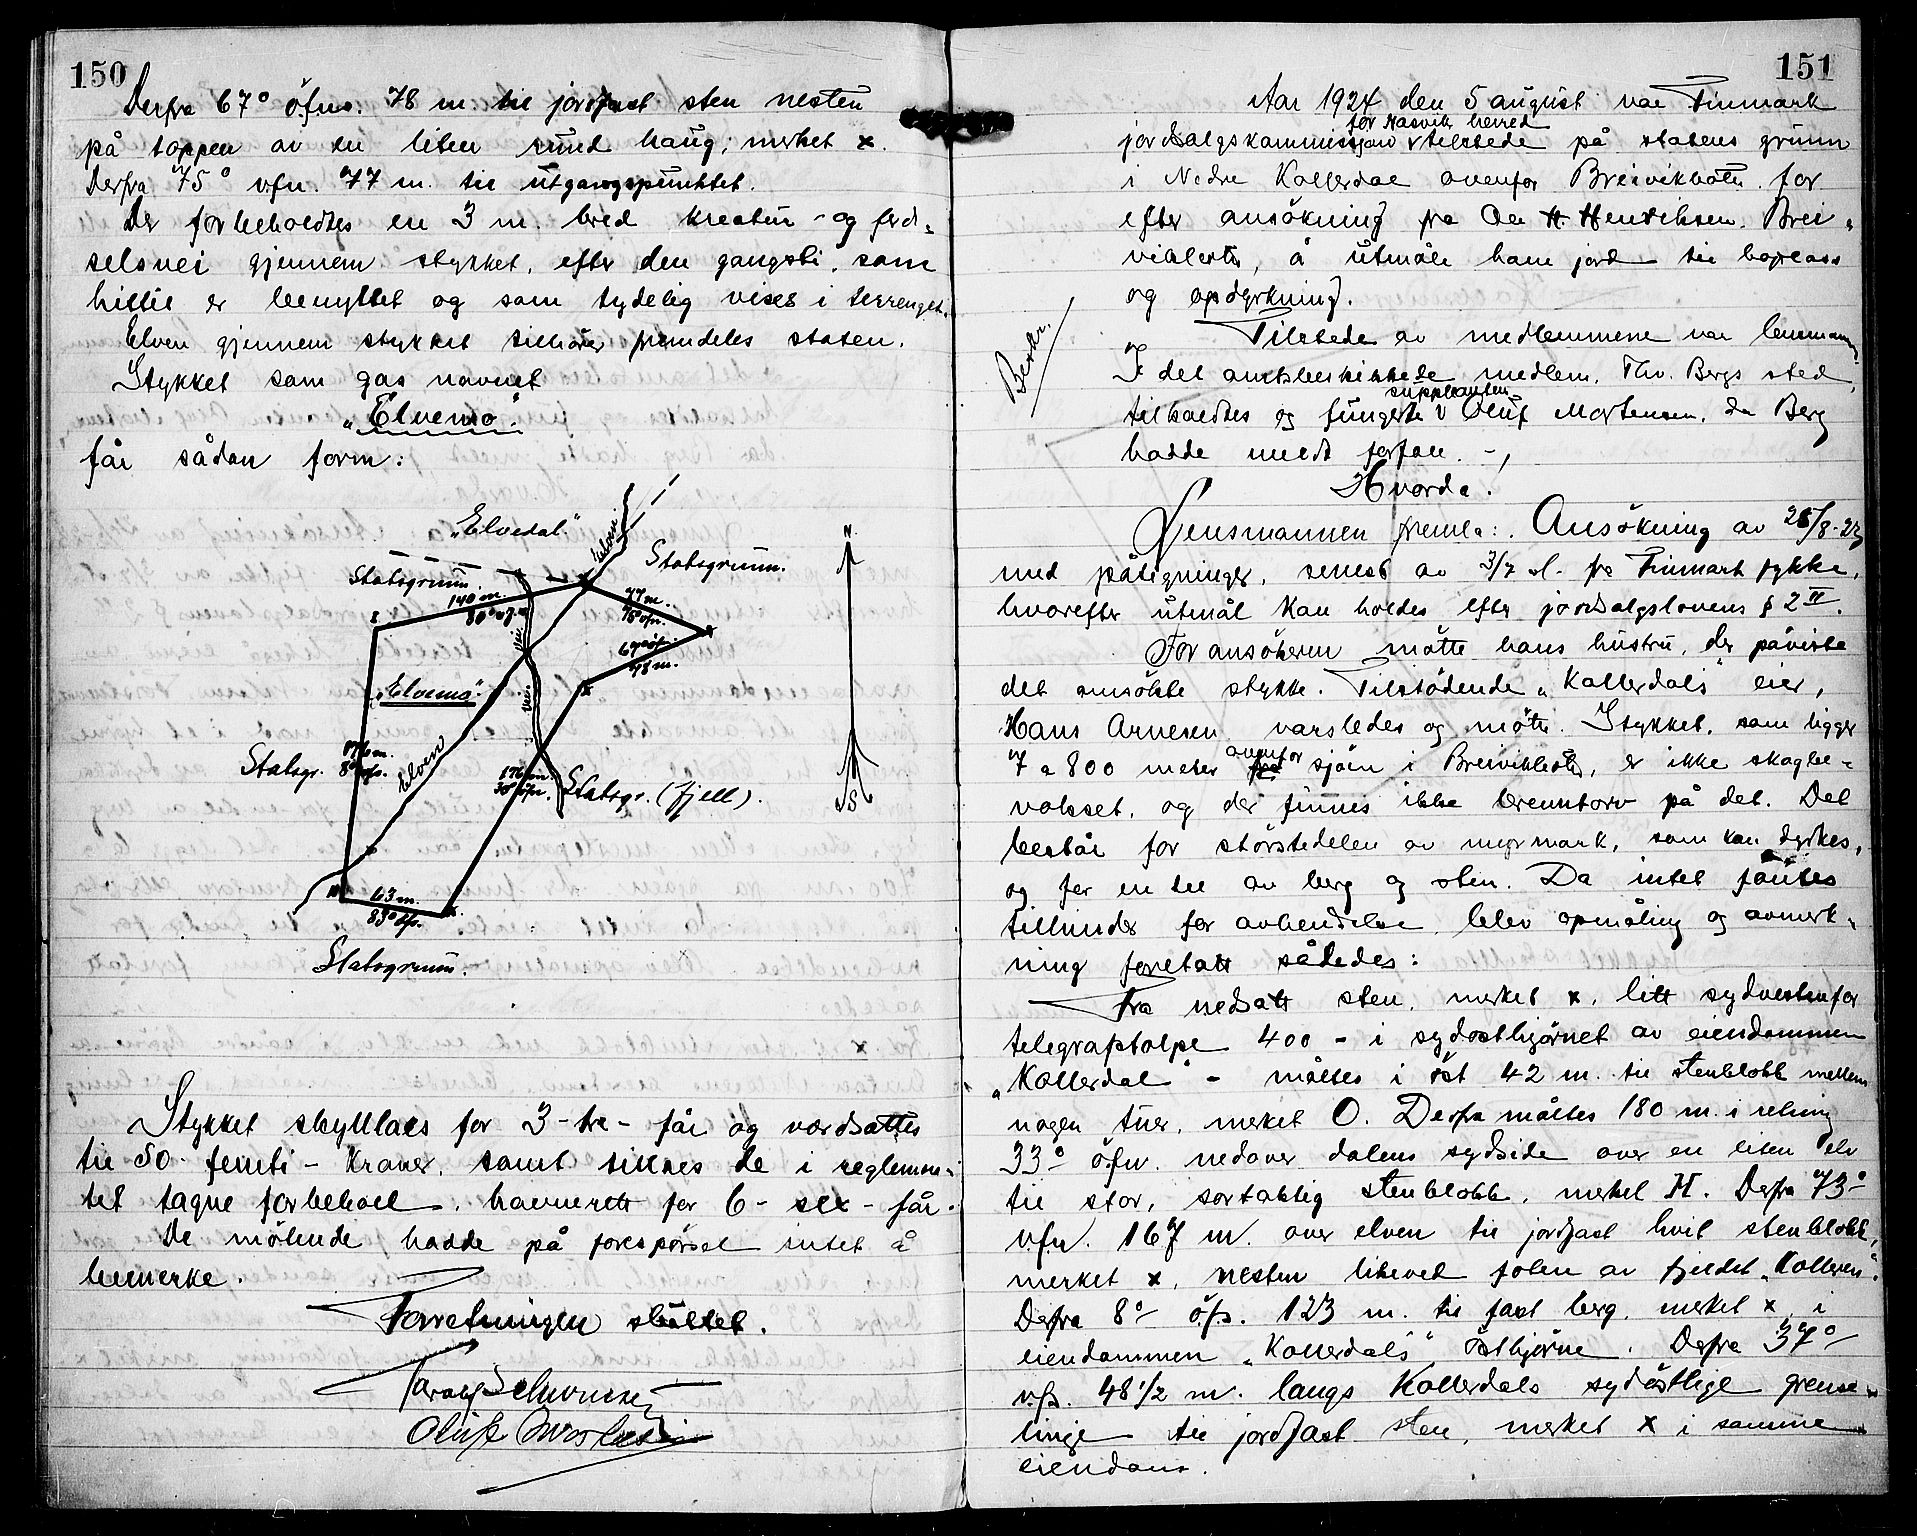 150
Derfra 67° öfn. 78 m. til jordfast sten nesten
på toppen av en liten rund haug, merket x.
Derfra 75° vfn. 77 m. til utgangspunktet.
Der forbeholdtes en 3 m. bred kreatur- og ferd-
selsvei gjennem stykket, efter den gangsti, som
hittil er benyttet og som tydelig vises i terrenget.
Elven gjennem stykket tilhörer fremdeles staten.
Stykket som gas navnet
"Elvemo".
får sådan form:
"Elvedal"
Elven
Statsgrunn.
Statsgrunn.
140 m.
80° ö.f.n.
77 m.
75° vfn.
67° öfn.
78 m.
Vei.
"Elvemo".
Vei.
176 m.
8° öfs.
Statsgr.
Elven
176 m.
30° öfn.
Statsgr. (fjell).
63 m.
83° öfs.
Statsgrunn.
N
S
Stykket skyldlaes for 3 - tre - får og værdsattes
til 50 - femti - kroner, samt tilltaes de i reglemen-
tet tagne forbehold, havnerett for 6 - sex - får.
De mötende hadde på forespörsel intet å
bemerke.
Forretningen sluttet.
151
Aar 1924 den 5 august var Finmark
for Hasvik herred
jordsalgskommissjon v tilstede på statens grunn
i Nedre Kollerdal ovenfor Breivikbotn for
efter ansökning fra Ole H. Henriksen, Brei-
vikbotn, å utmåle ham jord til boplass
og opdyrkning.
Tilstede av medlemmene var lensmannen
og
Bekr.
I det amtsbeskikkede medlem, Thv. Bergs sted,
suppleanten
tilkaldtes og fungerte v Oluf Mortensen, da Berg
hadde meldt forfall. -,
Hvorda.
Lensmannen fremla: Ansökning av 25/8-23
med påtegninger, senest av 3/7 d. fra Finmark fylke,
hvorefter utmål kan holdes efter jordsalgslovens § 2 II.
For ansökeren mötte hans hustru, der påviste
det ansökte stykke. Tilstödende "Kollerdals" eier,
Hans Arnesen varsledes og mötte. Stykket, som ligger
ovenfor
7 a 800 meter fra sjöen i Breivikbotn, er ikke skogbe-
vokset, og der finnes ikke brenntorv på det. Det
består for störstedelen av myrmark, som kan dyrkes,
og for en del av berg og sten. Da intet fantes
tilhinder for avhendelse, blev opmåling og avmerk-
ning foretatt således:
Fra nedsatt sten, merket x, litt sydvestenfor
telegrafstolpe 400 - i sydosthjörnet av eiendommen
"Kollerdal" - måltes i öst 42 m. til stenblokk mellem
nogen tuer, merket O. Derfra måltes 180 m. i retning
33° ö.f.n. nedover dalens sydside over en liten elv
til stor, sortaktig stenblokk, merket H. Derfra 73°
v.f.n. 167 m. over elven til jordfast hvit stenblokk,
merket x, nesten likeved foten av fjeldet "Kolleren".
Derfra 8° ö.f.s. 123 m. til fast berg, merket x, i
eiendommen "Kollerdals" østhjörne. Derfra 37°
v.f.s. 48 1/2 m. langs Kollerdals sydöstlige grense-
linje til jordfast sten, merket x i samme
eiendom.